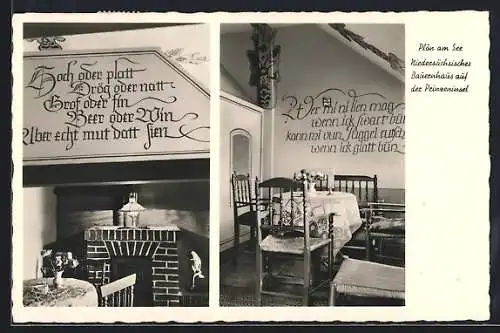 Hoch oder platt
Drög oder natt
Grof oder fin
Beer oder Win
Aber echt mutt datt sien
Wer mi ni lien mag
wenn ick swart bün
kann mi vun
wenn ick glatt bün
Plön am See
Niedersächsisches
Bauernhaus auf
der Prinzeninsel